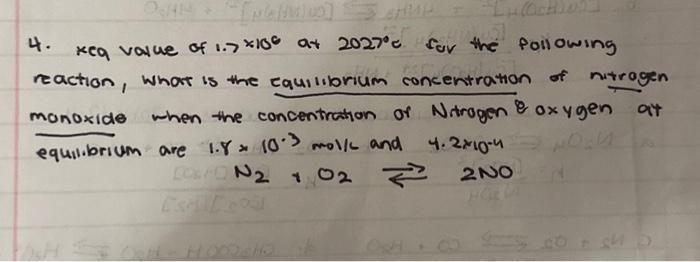 4. Keq value of 1.7 × 10⁶ at 2027°c for the following
reaction, what is the equilibrium concentration of nitrogen
monoxide when the concentration of Nitrogen & oxygen at
equilibrium are 1.8 × 10⁻³ mol/L and 4.2×10⁻⁴
N₂ + O₂ ⇌ 2NO